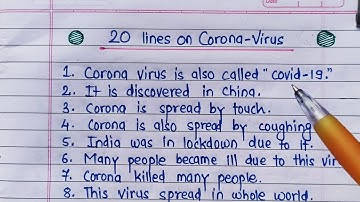 20 lines on Corona-Virus
1. Corona virus is also called "covid-19."
2. It is discovered in china.
3. Corona is spread by touch.
4. Corona is also spread by coughing
5. India was in lockdown due to it.
6. Many people became ill due to this vir
7. Corona killed many people.
8. This virus spread in whole world.